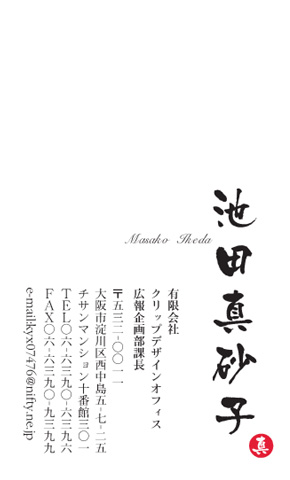 池田真砂子
真
Masako Ikeda
有限会社
クリップデザインオフィス
広報企画部課長
〒五三二-〇〇一一
大阪市淀川区西中島五-七-二五
チサンマンション十番館三〇一
TEL〇六-六三九〇-六三九六
FAX〇六-六三九〇-八三九九
e-mail:kyx07476@nifty.ne.jp